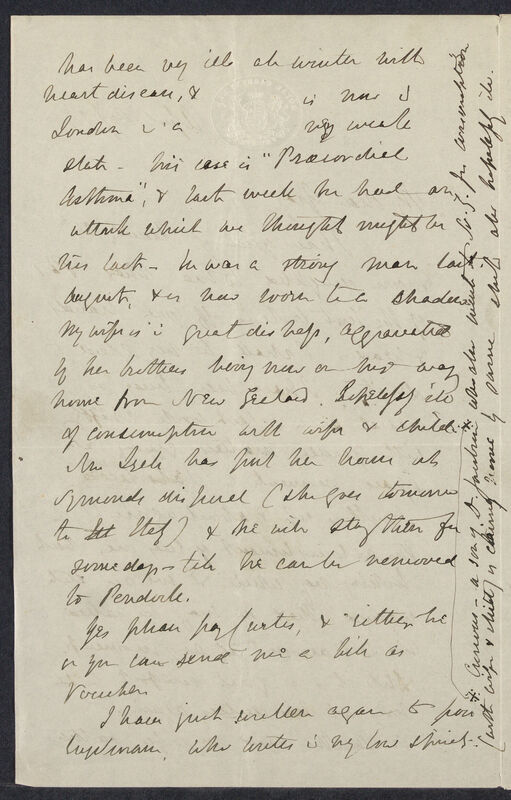 has been very ill all winter with
heart disease, &
is now in
London in a
very weak
state - his case is "Præcordial
Asthma", & last week he had an
attack which we thought might be
his last - He was a strong man last
August, & is now worn to a shadow
My wife is in great distress, aggravated
by her brothers being now on his way
home from New Zealand. hopelessly ill
of consumption with wife & child. x
Mrs has put her house at
Symonds disposal (she goes tomorrow
to Italy) & he will stay there for
some days - till he can be removed
to Pendock.
Yes please pay Curtis, & either he
or you can send me a bill as
Voucher
I have just written again to poor
who writes in very low spirits.
x Curious - a son of Dr was also sent to N.Z. for consumption
(with wife & child) is coming home by same ship also hopelessly ill.